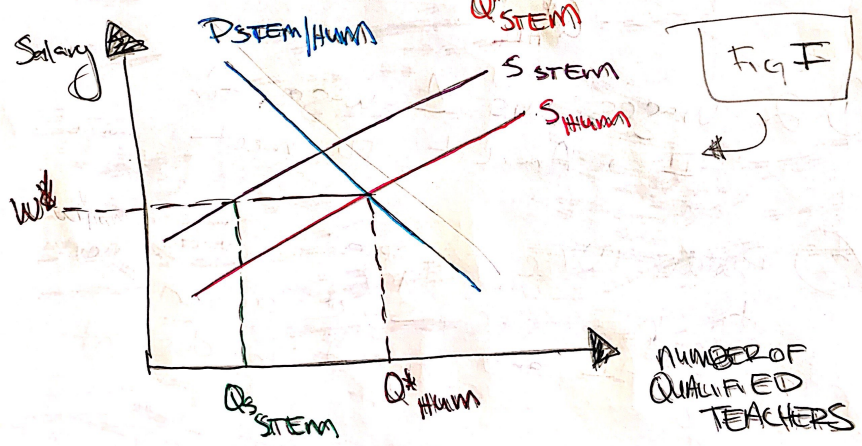 Salary
DSTEM/HUM
Q STEM
Fig I
S STEM
S HUM
W*
Qs STEM
Q* HUM
NUMBER OF
QUALIFIED
TEACHERS